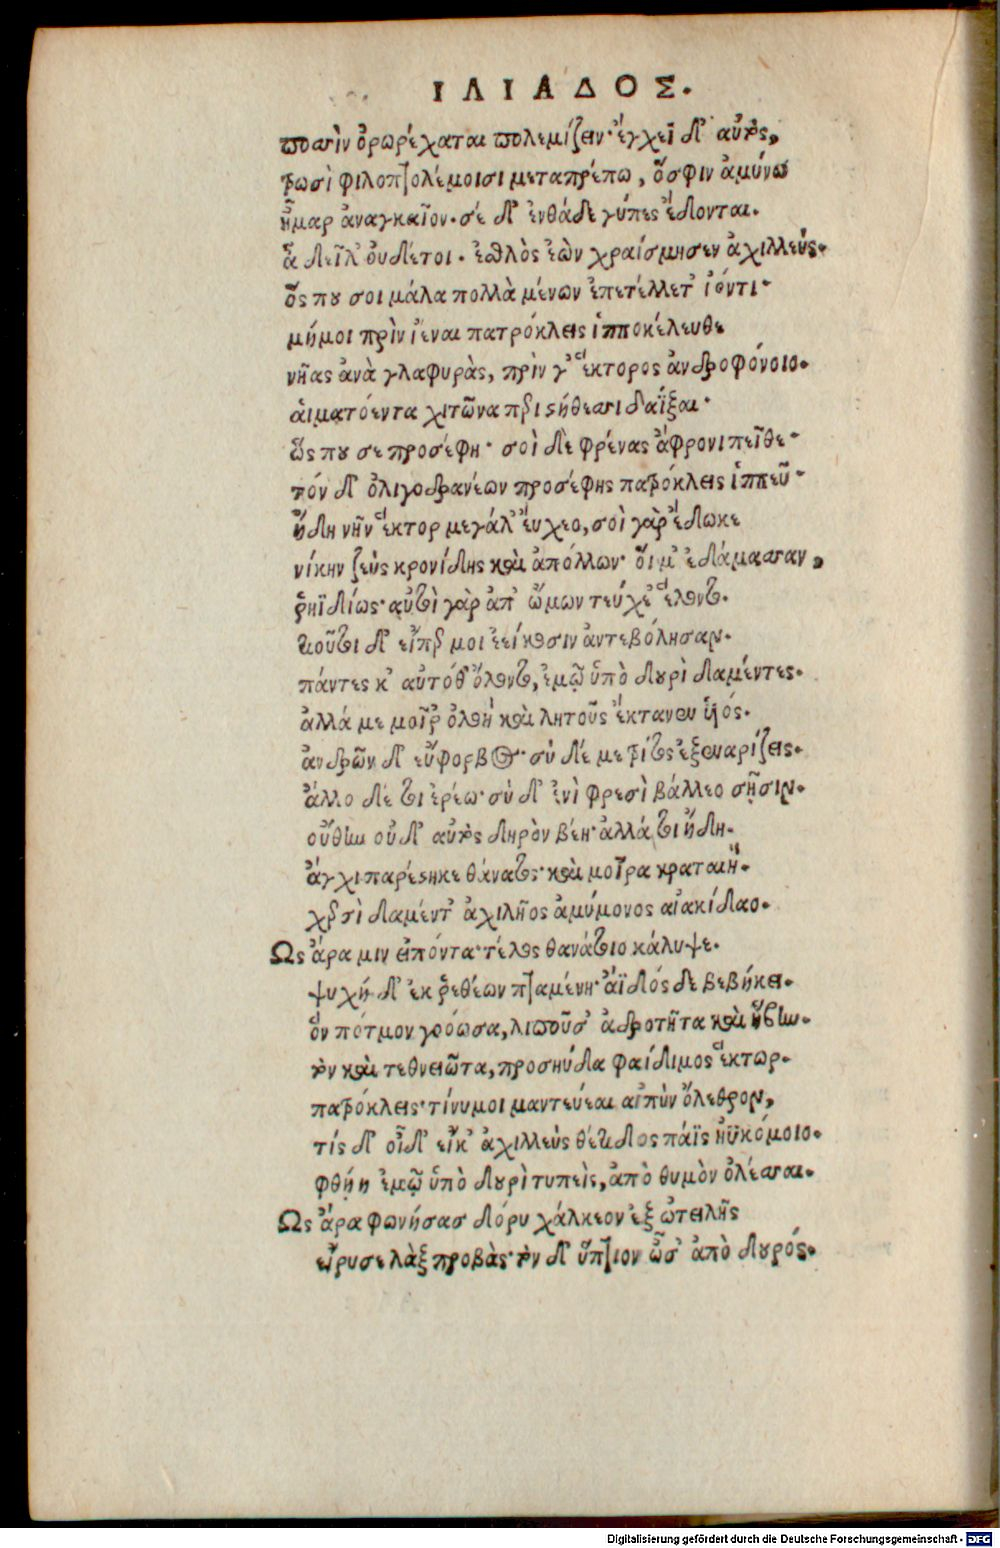 ΙΛΙΑΔΟΣ.
ποσὶν ὀρωρέχαται πολεμίζειν· ἔγχεϊ δ' αὐτὸς,
τρωσὶ φιλοπτολέμοισι μεταπρέπω, ὅ σφιν ἀμύνω
ἦμαρ ἀναγκαῖον. σέ δ' ἐνθάδε γύπες ἔδονται.
ἆ δείλ' ὀυδέτοι. ἐσθλὸς ἐὼν χραίσμησεν ἀχιλλεύς.
ὅς που σοι μάλα πολλὰ μένων ἐπετέλλετ' ἰόντι·
μήμοι πρὶν ἴεναι πατρόκλεις ἱπποκέλευθε
νῆας ἀνὰ γλαφυρὰς, πρὶν γ' ἕκτορος ἀνδροφόνοιο.
ἁιματόεντα χιτῶνα περι στήθεσσι δαΐξαι·
ὥς που σε προσέφη· σοὶ δὲ φρένας ἄφρονι πεῖθε·
τόν δ' ὀλιγοδρανέων προσέφης πατρόκλεις ἱππεῦ·
ἤδη νῦν ἕκτορ μεγάλ' ἔυχεο, σοὶ γὰρ ἔδωκε
νίκην ζεὺς κρονίδης καὶ ἀπόλλων· ὅι μ' ἐδάμασσαν,
ῥηϊδίως· αὐτοὶ γὰρ ἀπ' ὤμων τεύχε' ἕλοντο.
τοιοῦτοι δ' εἴπερ μοι ἐείκοσιν ἀντεβόλησαν.
πάντες κ' αὐτόθ' ὄλοντο, ἐμῷ ὑπὸ δουρὶ δαμέντες.
ἀλλά με μοῖρ' ὀλοὴ καὶ λητοῦς ἔκτανεν ὑιός.
ἀνδρῶν δ' εὔφορβος· σύ δέ με τρίτος ἐξεναρίζεις.
ἄλλο δέ τοι ἐρέω· σύ δ' ἐνὶ φρεσὶ βάλλεο σῇσιν.
οὔθην οὐδ' αὐτὸς δηρὸν βέη· ἀλλά τοι ἤδη.
ἄγχι παρέστηκε θάνατος· καὶ μοῖρα κραταιή.
χερσὶ δαμέντ' ἀχιλῆος ἀμύμονος αἰακίδαο.
Ὣς ἄρα μιν εἰπόντα· τέλος θανάτοιο κάλυψε.
ψυχή δ' ἐκ ῥεθέων πταμένη· ἄϊδός δε βεβήκει.
ὃν πότμον γοόωσα, λιποῦσ' ἀδροτῆτα καὶ ἥβην.
τὸν καὶ τεθνειῶτα, προσηύδα φαίδιμος ἕκτωρ.
πατρόκλεις· τίνυμοι μαντεύεαι αἰπὺν ὄλεθρον,
τίς δ' οἶδ' εἴκ' ἀχιλλεὺς θέτιδος πάϊς ἠϋκόμοιο.
φθήῃ ἐμῷ ὑπὸ δουρὶ τυπεὶς, ἀπὸ θυμὸν ὀλέσσαι.
Ὣς ἄρα φωνήσας δόρυ χάλκεον ἐξ ὠτειλῆς
εἴρυσε λὰξ προβὰς· τὸν δ' ὕπτιον ὦσ' ἀπὸ δουρός.
Digitalisierung gefördert durch die Deutsche Forschungsgemeinschaft - DFG